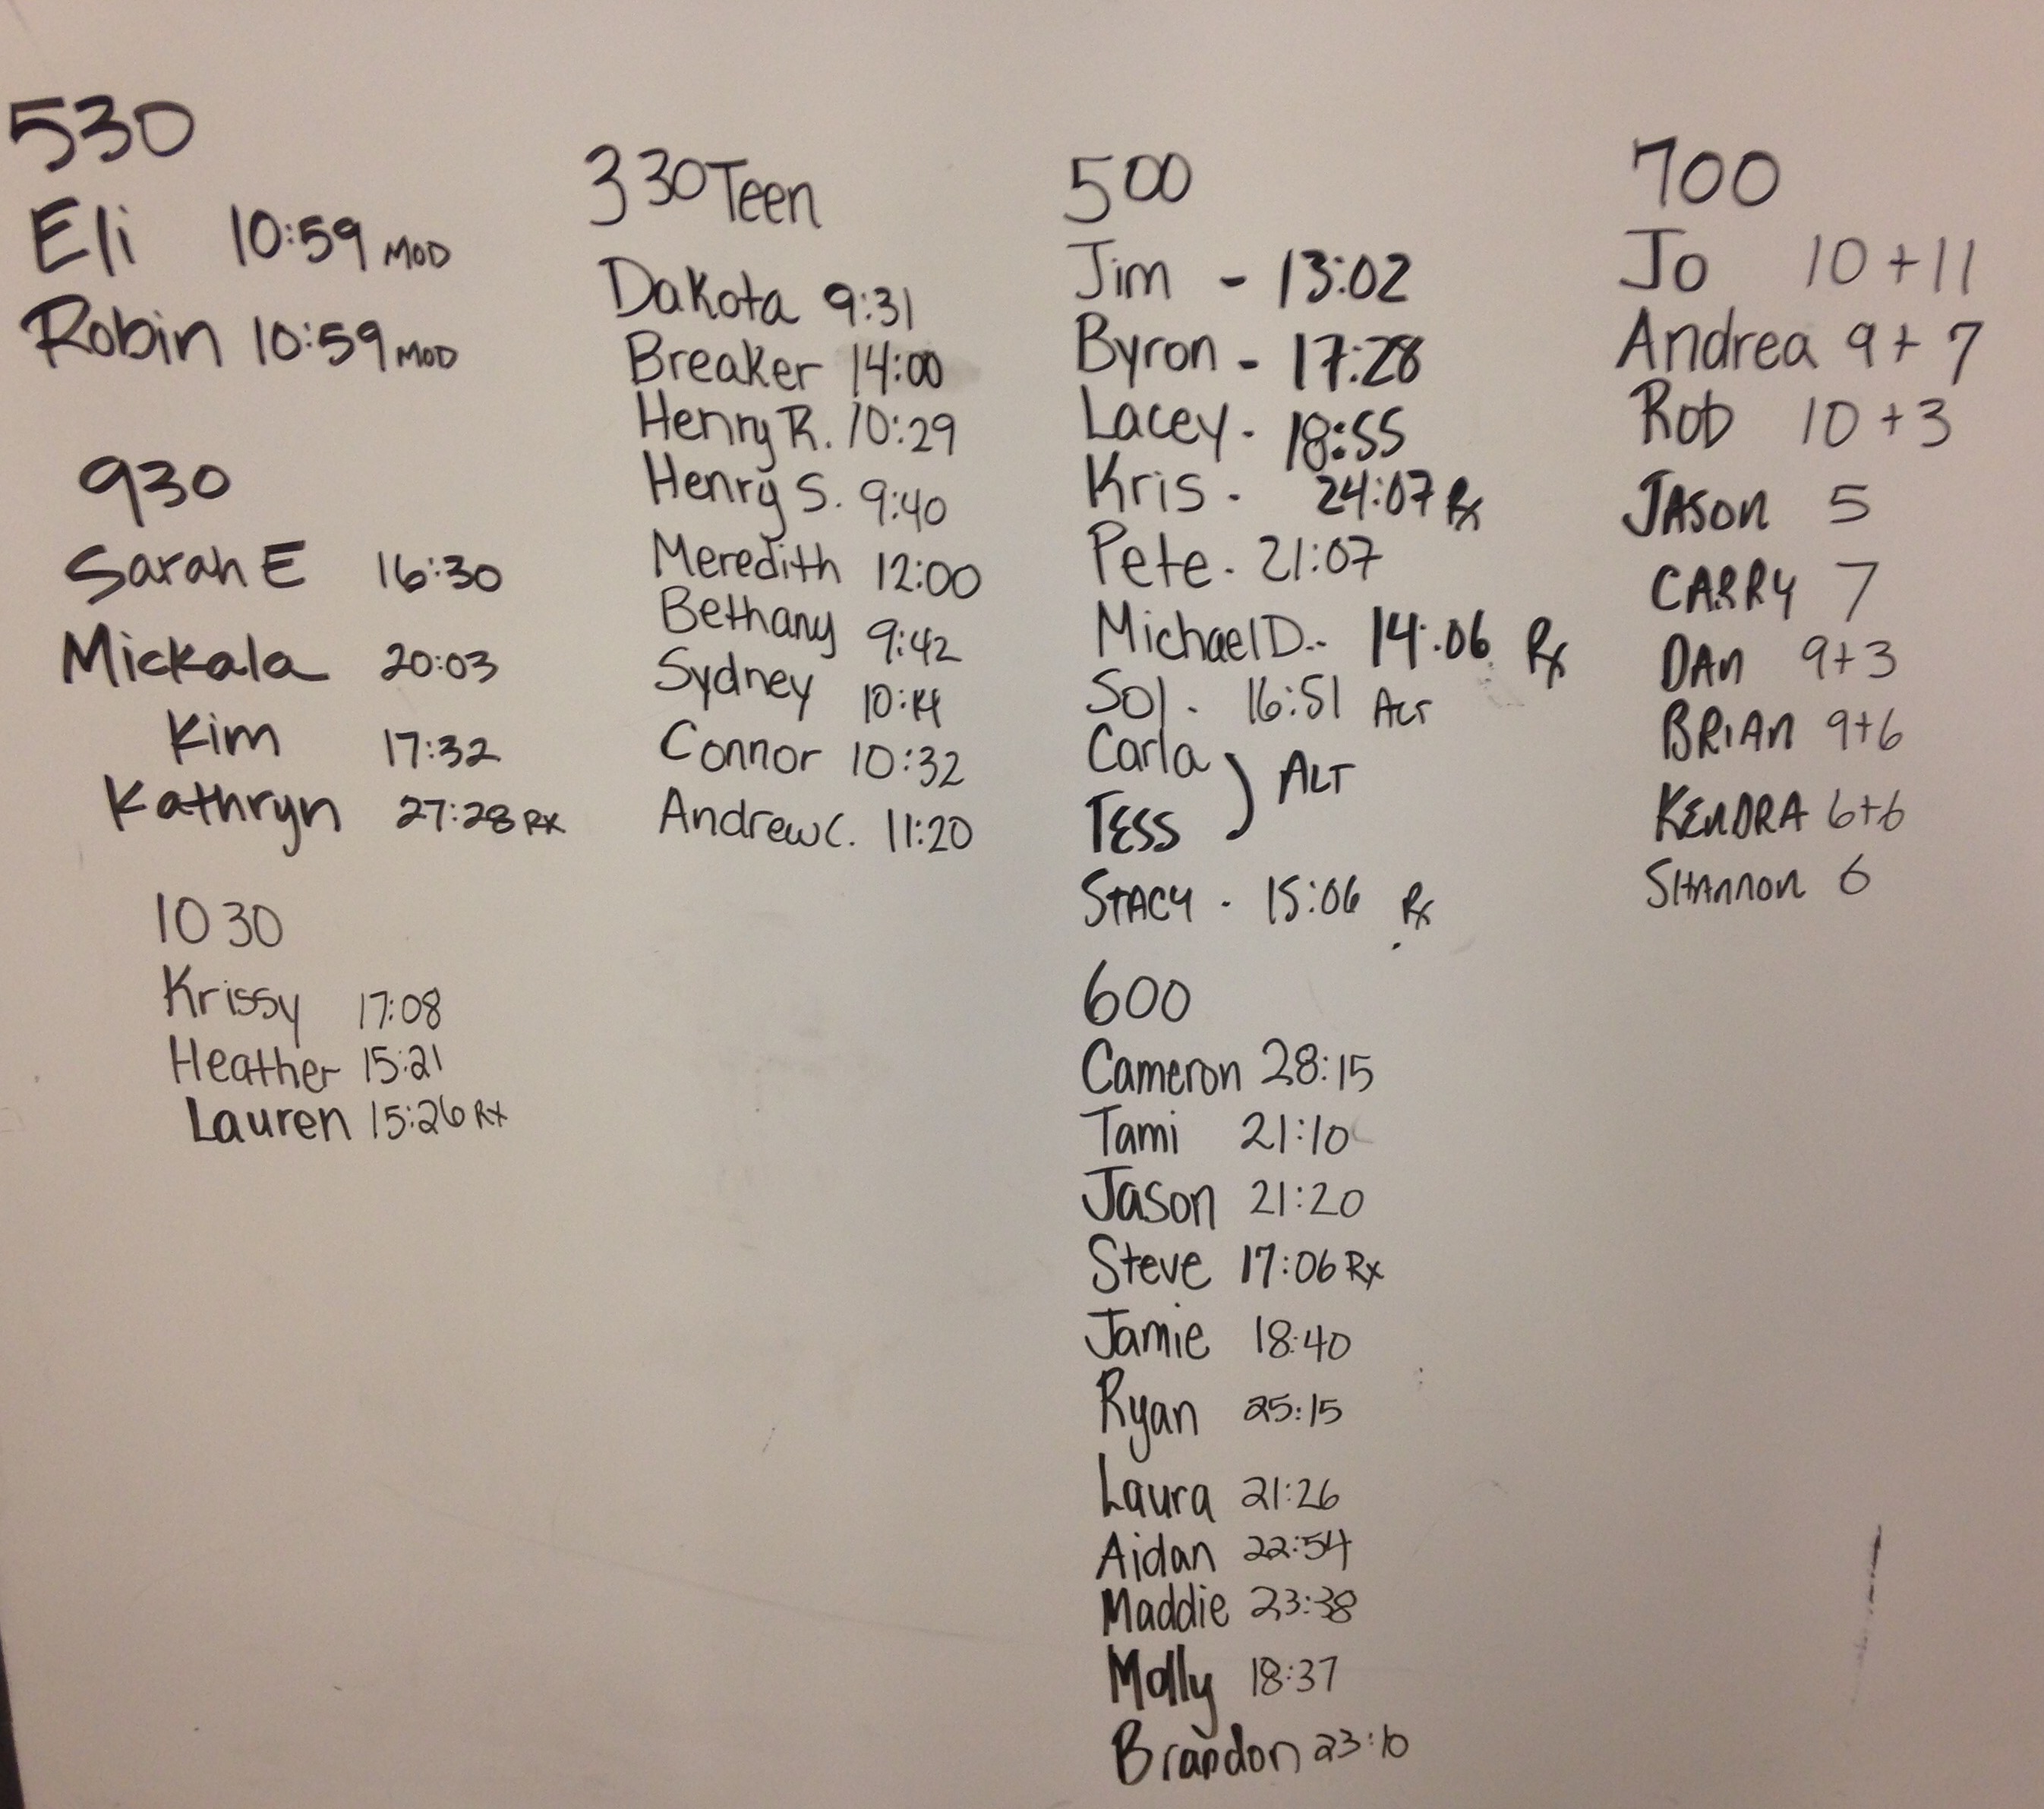 530
Eli 10:59 MOD
Robin 10:59 MOD
930
Sarah E 16:30
Mickala 20:03
Kim 17:32
Kathryn 27:28 RX
1030
Krissy 17:08
Heather 15:21
Lauren 15:26 Rx
330 Teen
Dakota 9:31
Breaker 14:00
Henry R. 10:29
Henry S. 9:40
Meredith 12:00
Bethany 9:42
Sydney 10:14
Connor 10:32
Andrew C. 11:20
500
Jim - 13:02
Byron - 17:28
Lacey - 18:55
Kris - 24:07 Rx
Pete - 21:07
Michael D.. 14:06 Rx
Sol - 16:51 ALT
Carla
TESS ) ALT
STACY - 15:06 Rx
600
Cameron 28:15
Tami 21:10
Jason 21:20
Steve 17:06 Rx
Jamie 18:40
Ryan 25:15
Laura 21:26
Aidan 22:54
Maddie 23:38
Molly 18:37
Brandon 23:10
700
Jo 10 + 11
Andrea 9 + 7
Rob 10 + 3
JASON 5
CARRY 7
DAN 9+3
BRIAN 9+6
KENDRA 6+6
SHANNON 6